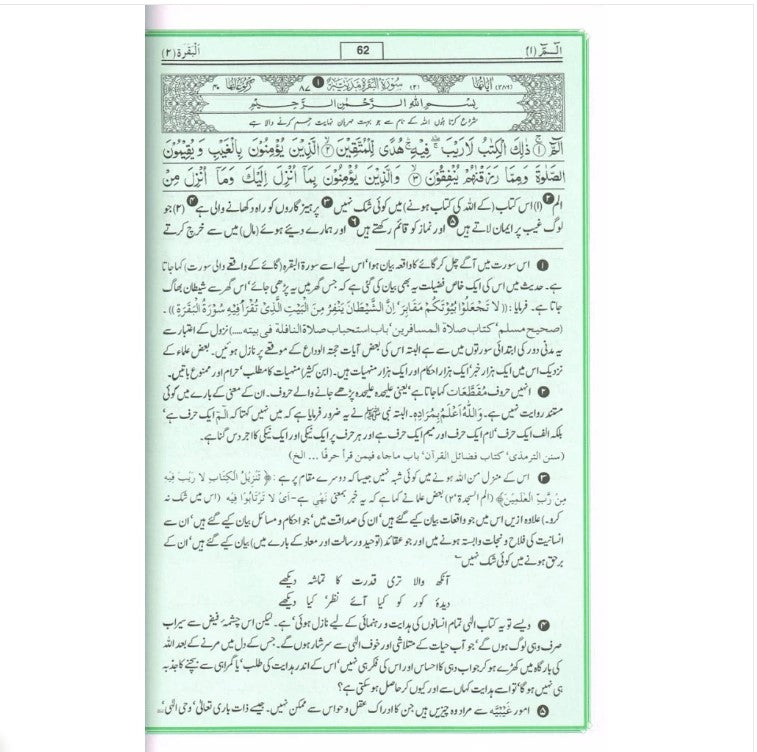 الٓمّٓ (۱) 62 البَقَرَة (۲)
اٰیاتُہا (۲۸۶) (۲) سُوْرَةُ الْبَقَرَةِ مَدَنِيَّةٌ ۱ ۸۷ رکوعاتُہا ۴۰
بِسْمِ اللّٰهِ الرَّحْمٰنِ الرَّحِيْمِ
شروع کرتا ہوں اللہ کے نام سے جو بہت مہربان نہایت رحم کرنے والا ہے
الٓمّٓ ۚ﴿۱﴾ ذٰلِكَ الْكِتٰبُ لَا رَيْبَ ۛۖ فِيْهِ ۛۚ هُدًى لِّلْمُتَّقِيْنَ ﴿۲﴾ الَّذِيْنَ يُؤْمِنُوْنَ بِالْغَيْبِ وَ يُقِيْمُوْنَ
الصَّلٰوةَ وَ مِمَّا رَزَقْنٰهُمْ يُنْفِقُوْنَ ﴿۳﴾ وَالَّذِيْنَ يُؤْمِنُوْنَ بِمَآ اُنْزِلَ اِلَيْكَ وَمَآ اُنْزِلَ مِنْ
الم ۲ (۱) اس کتاب (کے اللہ کی کتاب ہونے) میں کوئی شک نہیں ۳ پرہیزگاروں کو راہ دکھانے والی ہے ۴ (۲) جو
لوگ غیب پر ایمان لاتے ہیں ۵ اور نماز کو قائم رکھتے ہیں ۶ اور ہمارے دیئے ہوئے (مال) میں سے خرچ کرتے
۱ اس سورت میں آگے چل کر گائے کا واقعہ بیان ہوا، اس لیے اسے سورۃ البقرہ (گائے کے واقعے والی سورت) کہا جاتا
ہے۔ حدیث میں اس کی ایک خاص فضیلت یہ بھی بیان کی گئی ہے کہ جس گھر میں یہ پڑھی جائے، اس گھر سے شیطان بھاگ
جاتا ہے۔ فرمایا: ((لَا تَجْعَلُوْا بُيُوْتَكُمْ مَقَابِرَ، اِنَّ الشَّيْطَانَ يَنْفِرُ مِنَ الْبَيْتِ الَّذِيْ تُقْرَأُ فِيْهِ سُوْرَةُ الْبَقَرَةِ))۔
(صحيح مسلم، كتاب صلاة المسافرين، باب استحباب صلاة النافلة فى بيته....) نزول کے اعتبار سے
یہ مدنی دور کی ابتدائی سورتوں میں سے ہے البتہ اس کی بعض آیات حجۃ الوداع کے موقعے پر نازل ہوئیں۔ بعض علماء کے
نزدیک اس میں ایک ہزار خبر، ایک ہزار احکام اور ایک ہزار منہیات ہیں۔ (ابن کثیر) منہیات کا مطلب، حرام اور ممنوع باتیں۔
۲ انہیں حروف مُقَطَّعَات کہا جاتا ہے، یعنی علیحدہ علیحدہ پڑھے جانے والے حروف۔ ان کے معنی کے بارے میں کوئی
مستند روایت نہیں ہے۔ وَاللّٰهُ أَعْلَمُ بِمُرَادِهِ۔ البتہ نبی ﷺ نے یہ ضرور فرمایا ہے کہ میں نہیں کہتا کہ الٓمٓ ایک حرف ہے،
بلکہ الف ایک حرف، لام ایک حرف اور میم ایک حرف ہے اور ہر حرف پر ایک نیکی اور ایک نیکی کا اجر دس گنا ہے۔
(سنن الترمذی، كتاب فضائل القرآن، باب ماجاء فيمن قرأ حرفًا ... الخ)
۳ اس کے منزل من اللہ ہونے میں کوئی شبہ نہیں جیسا کہ دوسرے مقام پر ہے: ﴿تَنْزِيْلُ الْكِتٰبِ لَا رَيْبَ فِيْهِ
مِنْ رَّبِّ الْعٰلَمِيْنَ﴾ (الم السجدة-۲) بعض علما نے کہا ہے کہ یہ خبر بمعنی نَهْی ہے۔ اَیْ لَا تَرْتَابُوْا فِيْهِ (اس میں شک نہ
کرو۔) علاوہ ازیں اس میں جو واقعات بیان کیے گئے ہیں، ان کی صداقت میں، جو احکام و مسائل بیان کیے گئے ہیں، ان سے
انسانیت کی فلاح و نجات وابستہ ہونے میں اور جو عقائد (توحید و رسالت اور معاد کے بارے میں) بیان کیے گئے ہیں، ان کے
برحق ہونے میں کوئی شک نہیں۔
آنکھ والا تری قدرت کا تماشہ دیکھے
دیدۂ کور کو کیا آئے نظر، کیا دیکھے
۴ ویسے تو یہ کتاب الٰہی تمام انسانوں کی ہدایت و رہنمائی کے لیے نازل ہوئی ہے۔ لیکن اس چشمۂ فیض سے سیراب
صرف وہی لوگ ہوں گے، جو آب حیات کے متلاشی اور خوف الٰہی سے سرشار ہوں گے۔ جس کے دل میں مرنے کے بعد اللہ
کی بارگاہ میں کھڑے ہو کر جواب دہی کا احساس اور اس کی فکر ہی نہیں، اس کے اندر ہدایت کی طلب، یا گمراہی سے بچنے کا جذبہ
ہی نہیں ہوگا، تو اسے ہدایت کہاں سے اور کیوں کر حاصل ہوسکتی ہے؟
۵ امور غَيْبِيَّه سے مراد وہ چیزیں ہیں جن کا ادراک عقل و حواس سے ممکن نہیں۔ جیسے ذات باری تعالیٰ، وحی الٰہی،